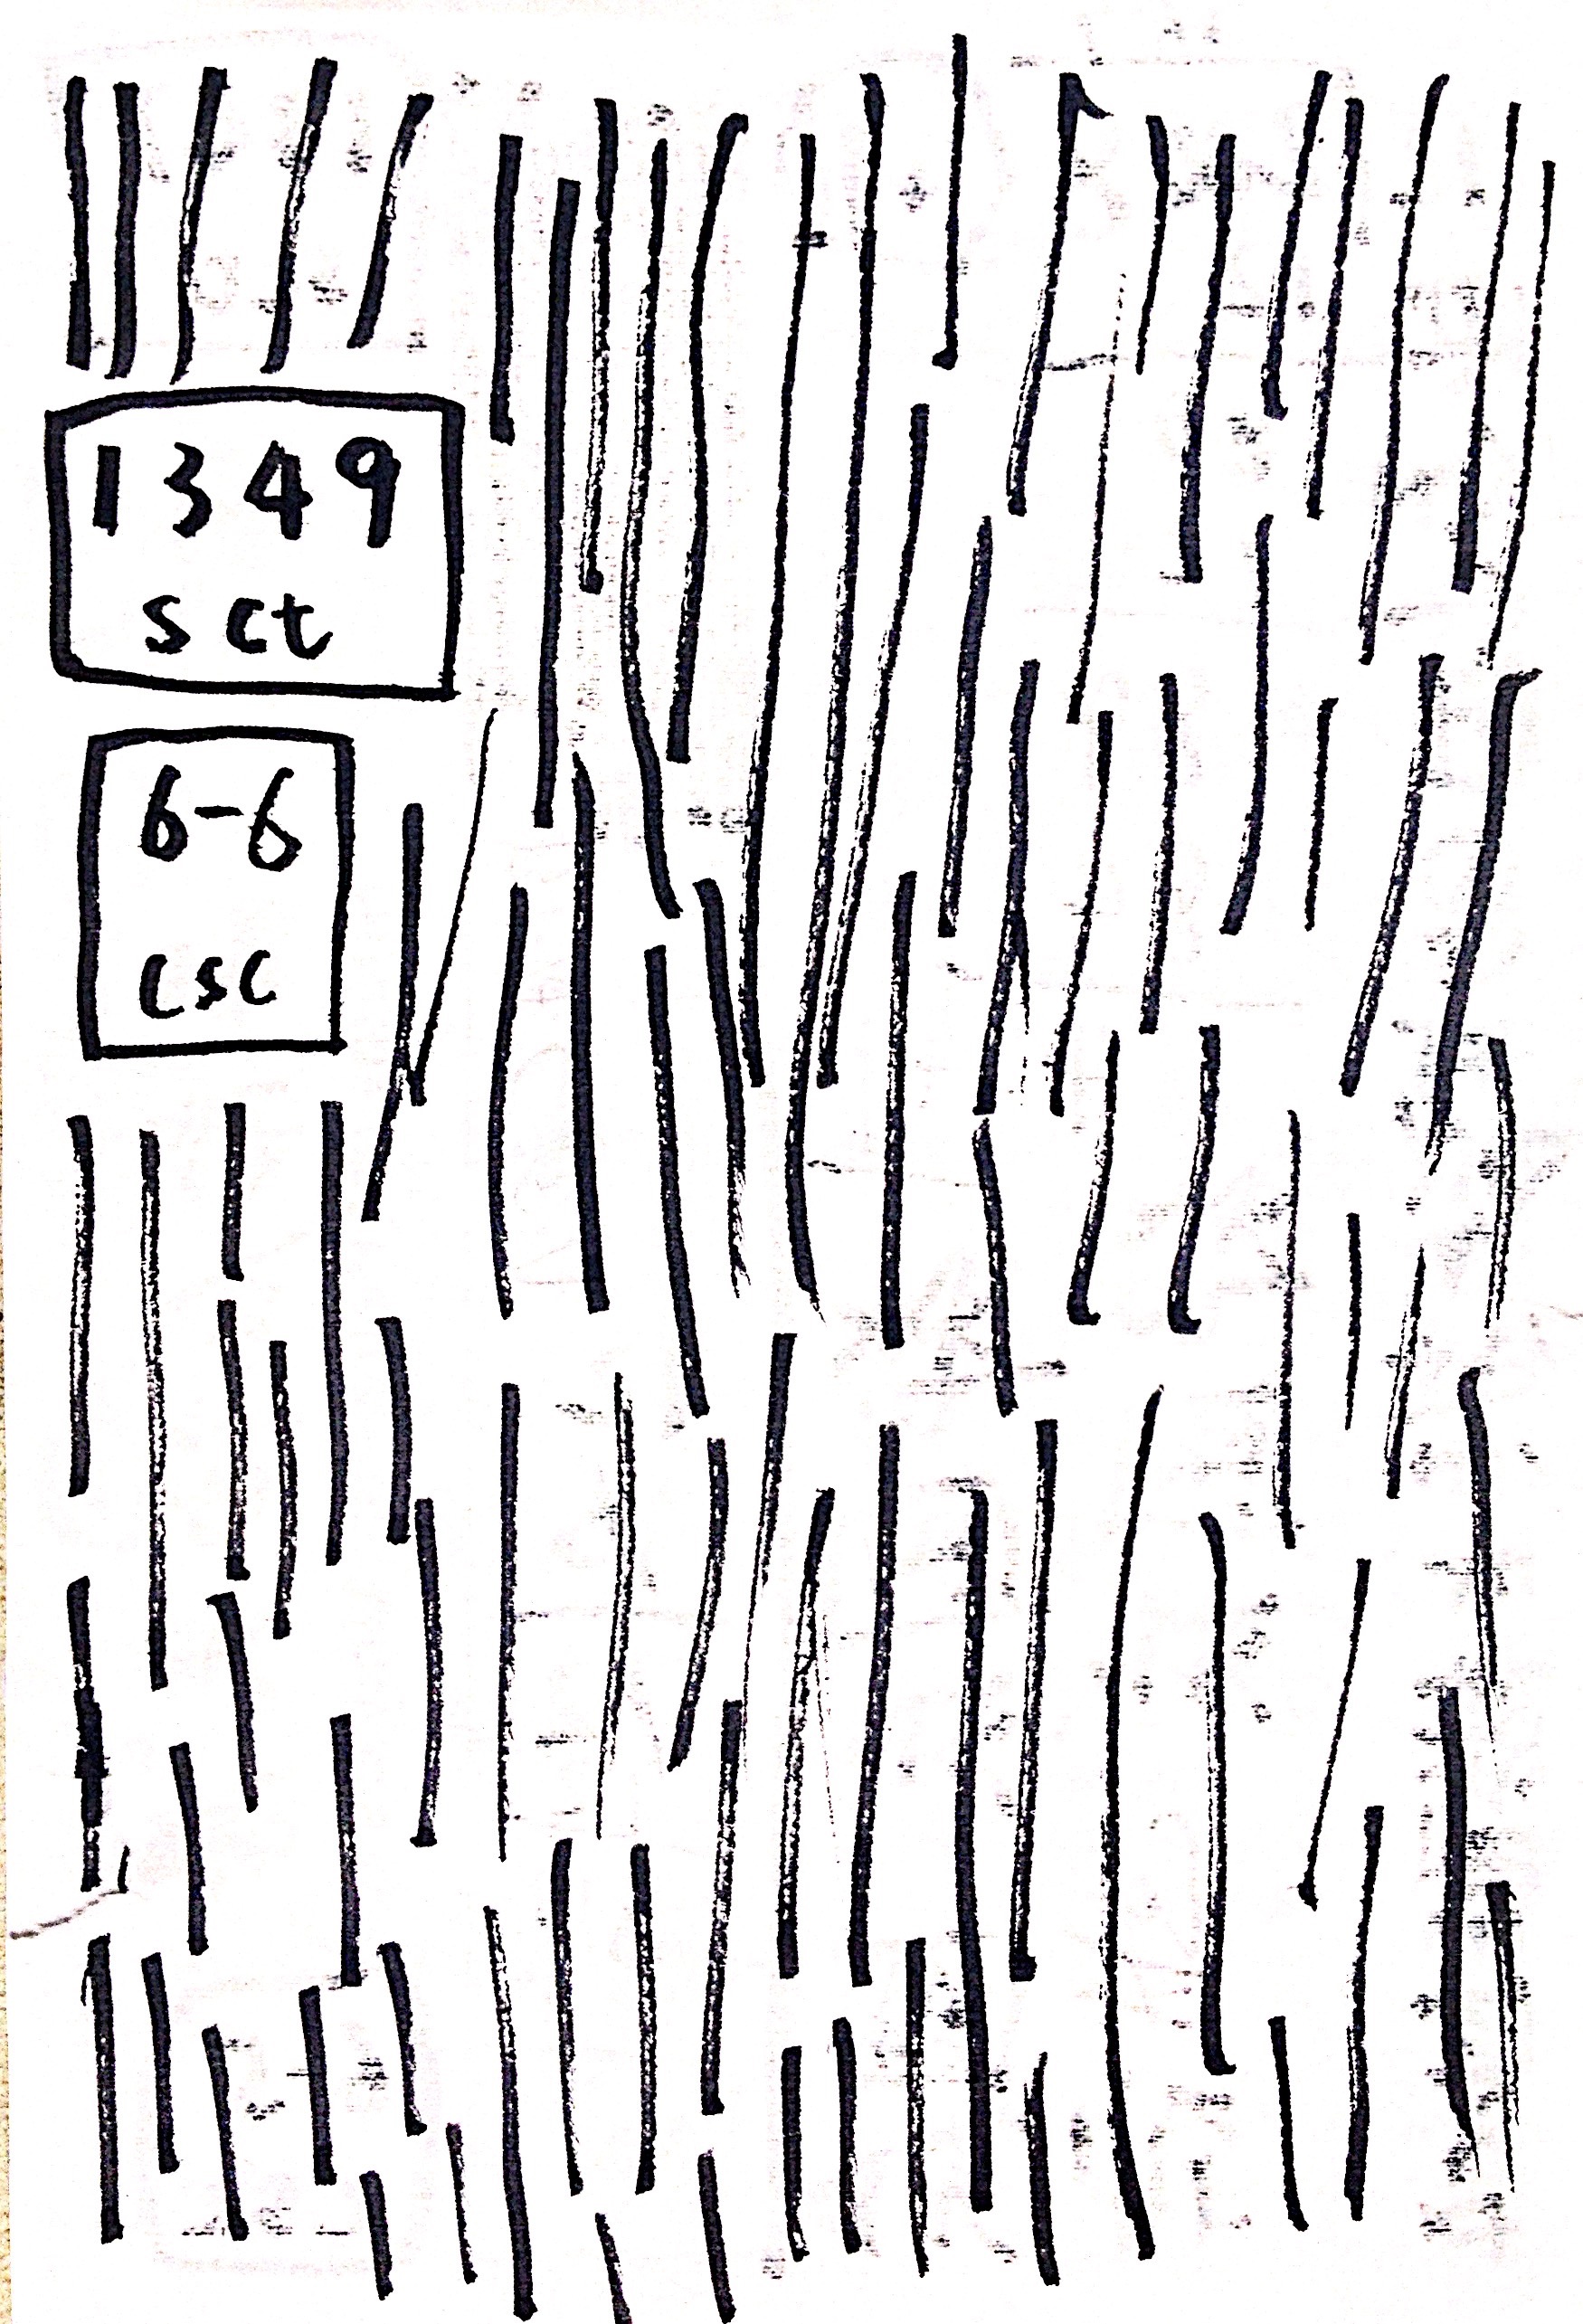 1349
sct
6-6
csc